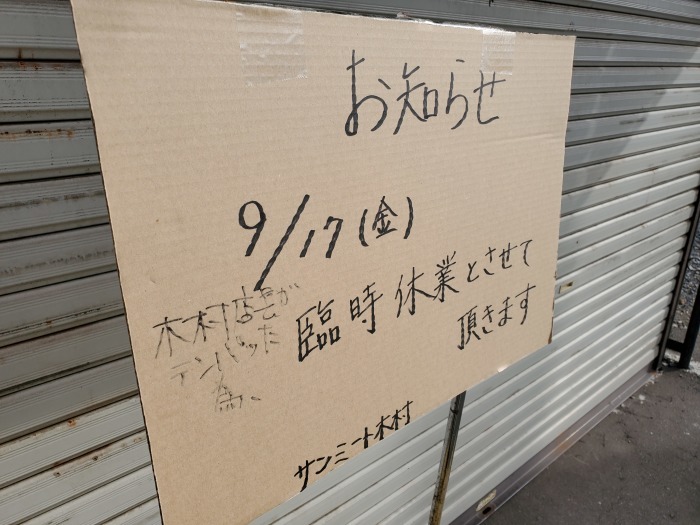 お知らせ
9/17(金)
木村店長が
テンパッた
為、
臨時休業とさせて
頂きます
サンミート木村